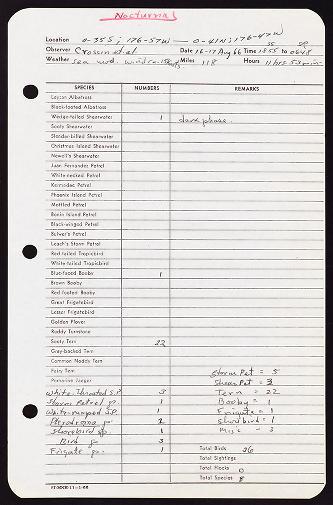 Nocturnal
Location 0-35S; 176-57W — 0-41N; 176-47W
Observer Crossin et al Date 16-17 Aug 66 Time 1855 to 0648
Weather sea mod. wind Miles 118 Hours 11 hrs 53 min
SPECIES NUMBERS REMARKS
Laysan Albatross
Black-footed Albatross
Wedge-tailed Shearwater 1 dark phase.
Sooty Shearwater
Slender-billed Shearwater
Christmas Island Shearwater
Newell's Shearwater
Juan Fernandez Petrel
White-necked Petrel
Kermadec Petrel
Phoenix Island Petrel
Mottled Petrel
Bonin Island Petrel
Black-winged Petrel
Bulwer's Petrel
Leach's Storm Petrel
Red-tailed Tropicbird
White-tailed Tropicbird
Blue-faced Booby 1
Brown Booby
Red-footed Booby
Great Frigatebird
Lesser Frigatebird
Golden Plover
Ruddy Turnstone
Sooty Tern 22
Grey-backed Tern
Common Noddy Tern
Fairy Tern Storm Pet = 5
Pomarine Jaeger Shear Pet = 3
White-throated S.P. 3 Tern = 22
Storm Petrel sp. 1 Booby = 1
White-rumped S.P. 1 Frigate = 1
Pterodroma sp. 2 Shorebird = 1
Shorebird sp. 1 Misc - 3
Bird sp. 3
Frigate sp. 1 Total Birds 36
Total Sighting
Total Flocks 0
Total Species 8